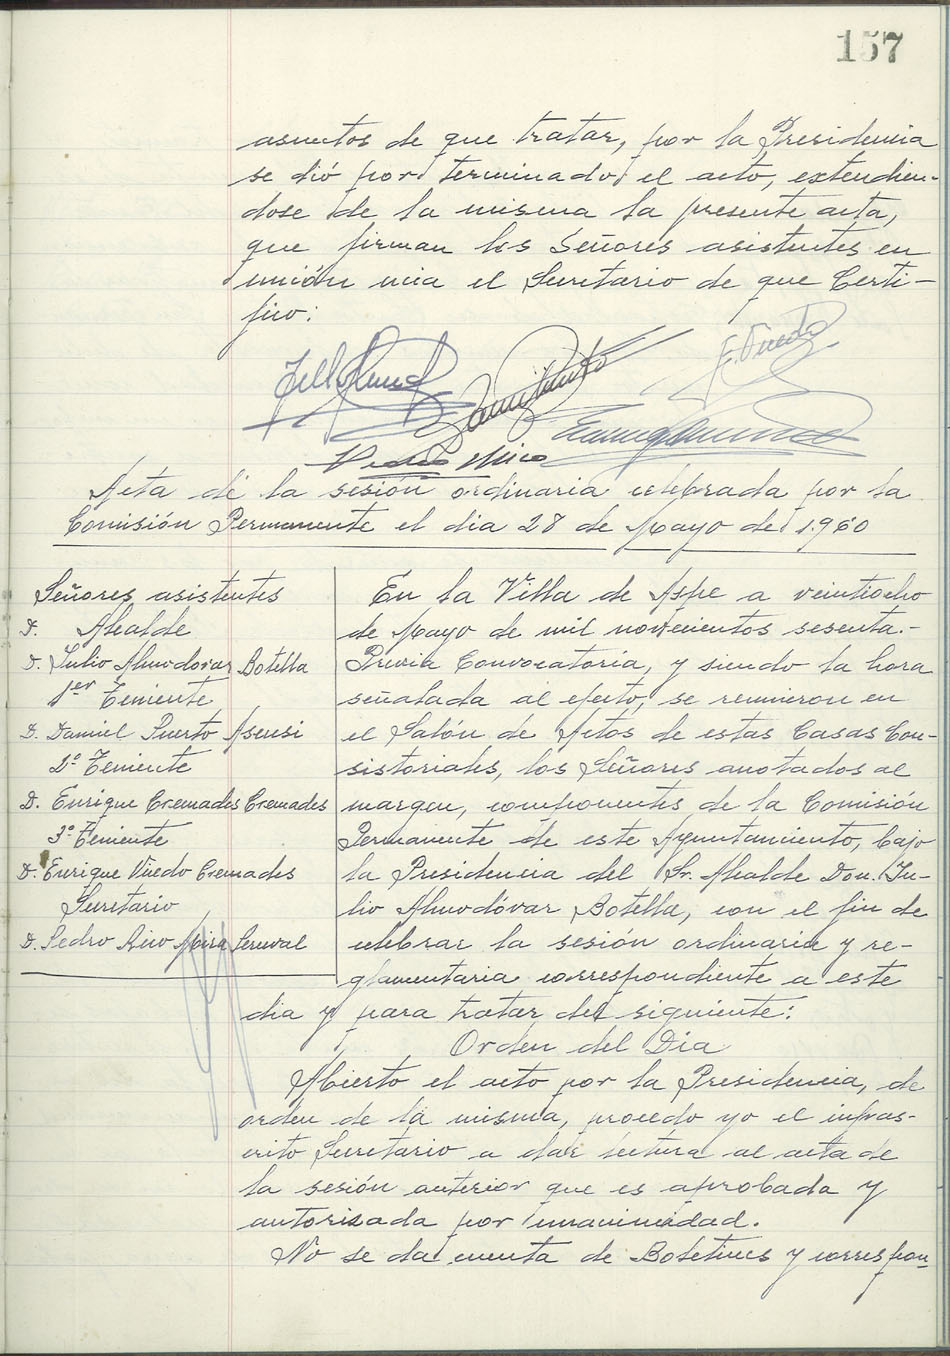 157
asuntos de que tratar, por la Presidencia
se dió por terminado el acto, extendien-
dose de la misma la presente acta,
que firman los Señores asistentes en
unión mia el Secretario de que Certi-
fico:
Pedro Mira
Acta de la sesión ordinaria celebrada por la
Comisión Permanente el dia 28 de Mayo de 1.960
Señores asistentes
D. Alcalde
D. Julio Almodovar Botella
1er Teniente
D. Daniel Puerto Asensi
2º Teniente
D. Enrique Cremades Cremades
3º Teniente
D. Enrique Cremades
Secretario
D. Pedro Mira
En la Villa de Aspe a veintiocho
de Mayo de mil novecientos sesenta.-
Previa Convocatoria, y siendo la hora
señalada al efecto, se reunieron en
el Salón de Actos de estas Casas Con-
sistoriales, los Señores anotados al
margen, componentes de la Comisión
Permanente de este Ayuntamiento, bajo
la Presidencia del Sr. Alcalde Don. Ju-
lio Almodóvar Botella, con el fin de
celebrar la sesión ordinaria y re-
glamentaria correspondiente a este
dia y para tratar del siguiente:
Orden del Dia
Abierto el acto por la Presidencia, de
orden de la misma, procedo yo el infras-
crito Secretario a dar lectura al acta de
la sesión anterior que es aprobada y
autorizada por unanimidad.
No se da cuenta de Boletines y correspon-